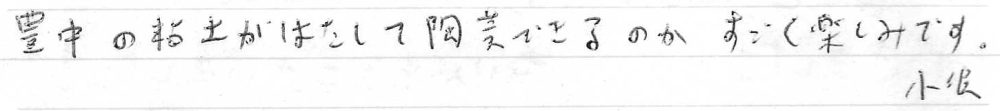 豊中の粘土がはたして陶芸できるのか すごく楽しみです。
小浪